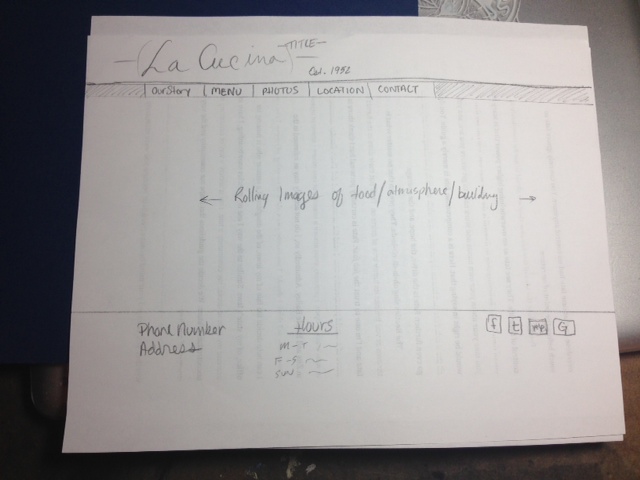 — (La Cucina) —
—TITLE—
Est. 1952
Our Story | MENU | PHOTOS | LOCATION | CONTACT
← Rolling Images of food/atmosphere/building →
Phone Number
Address
Hours
M-T
F-S
SUN
f t G